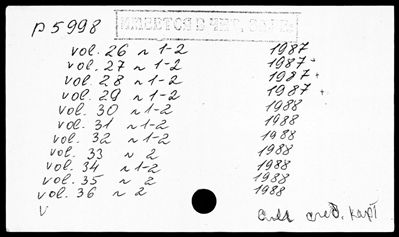 p 5998
ИМЕЕТСЯ В ЧИТ. ЗАЛЕ
vol. 26 n 1-2 1987
vol. 27 n 1-2 1987 +
vol. 28 n 1-2 1987 +
vol. 29 n 1-2 1987 +
vol. 30 n 1-2 1988
vol. 31 n 1-2 1988
vol. 32 n 1-2 1988
vol. 33 n 2 1988
vol. 34 n 1-2 1988
vol. 35 n 2 1988
vol. 36 n 2 1988
V
след. карт